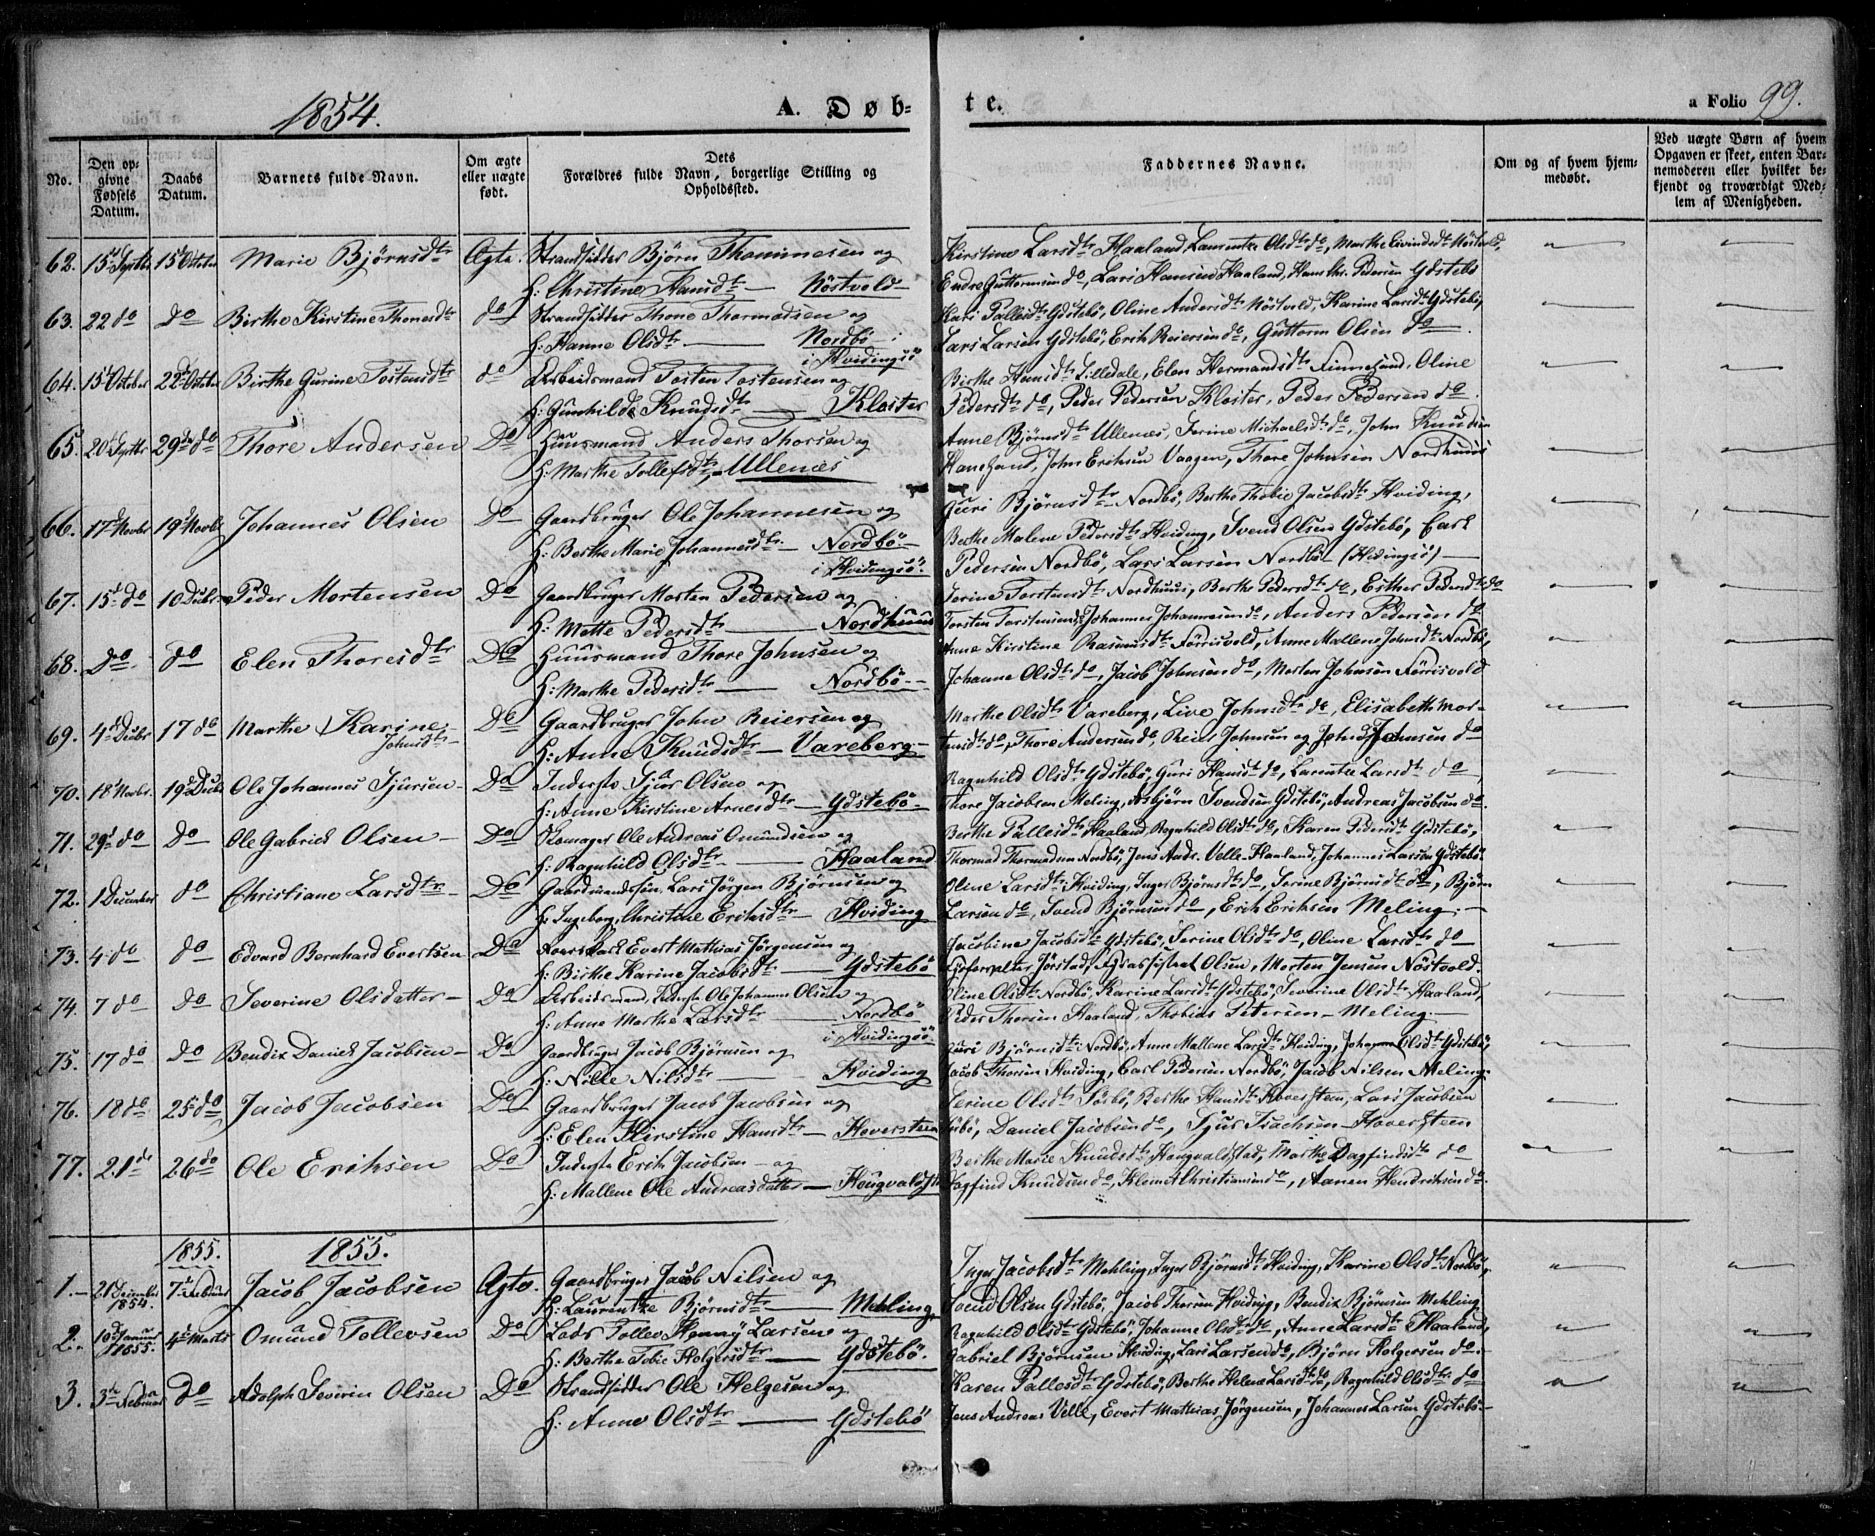 1854.
A. Døb-
te.
a Folio 99.
No.
Den op-
givne
Fødsels
Datum.
Daabs
Datum.
Barnets fulde Navn.
Om ægte
eller uægte
født.
Dets
Forældres fulde Navn, borgerlige Stilling og
Opholdssted.
Faddernes Navne.
Om og af hvem hjem-
medøbt.
Ved uægte Børn af hvem
Opgaven er skeet, enten Bar-
nemoderen eller hvilket be-
kjendt og troværdigt Med-
lem af Menigheden.
62. 15de Septbr 15de Octbr Marie Bjørnsdtr Ægte. Strandsidder Bjørn Thommesen og
H: Christine Hansdtr — Nöstvold
Kirstine Larsdtr Haaland, Laurentze Olsdtr do, Marthe Eivindsdtr Nöstvold,
Endre Guttormsen do, Lars Hansen Haaland, Hans Chr. Pedersen Ydstebö
63. 22 do do Birthe Kirstine Thonesdtr do Strandsidder Thone Thormodsen og
H: Hanne Olsdtr — Nordbö
i Hvidingsö
Kari Pallesdtr Ydstebö, Oline Andersdtr Nöstvold, Karine Larsdtr Ydstebö,
Lars Larsen Ydstebö, Erik Reiersen do, Guttorm Olsen do
64. 15de October 22de October Birthe Gurine Tostensdtr do Arbeidsmand Tosten Tostensen og
H: Gunhilde Knudsdtr — Kloster
Birthe Hansdtr Lilledale, Elen Hermandsdtr Finnesand, Oline
Pedersdtr do, Peder Pedersen Kloster, Peder Pedersen do.
65. 20de Septbr 29de do Thore Andersen Do Huusmand Anders Thorsen og
H: Marthe Tollefsdtr, — Ullenæs
Anne Bjørnsdtr Ullenæs, Serine Michaelsdtr do, John Knudsen
Hanesand, John Eriksen Vaagen, Thore Johnsen Nordhuus
66. 17de Novbr 19de Novbr Johannes Olsen Do Gaardbruger Ole Johannesen og
H: Berthe Marie Johannesdtr. — Nordbö
i Hvidingsö
Guri Bjørnsdtr Nordbö, Berthe Thobie Jacobsdtr Hviding,
Berthe Malene Pedersdtr Hviding, Svend Olsen Ydstebö, Carl
Pedersen Nordbö, Lars Larsen Nordbö (Hvidingsö)
67. 15de do 10 Decbr Peder Mortensen Do Gaardbruger Morten Pedersen og
H: Mette Pedersdtr — Nordhuus
Serine Torstensdtr Nordhuus, Berthe Pedersdtr do, Esther Pedersdtr do
Torsten Torstensen do, Johannes Johannesen do, Anders Pedersen do
68. Do do Elen Thoresdtr Do Huusmand Thore Johnsen og
H: Marthe Pedersdtr — Nordbö
Anne Kirstine Rasmusdtr Förrisvold, Anne Mallene Johnsdtr Nordbö,
Johanne Olsdtr do, Jacob Johnsen do, Morten Johnsen Förrisvold
69. 4de Decbr 17 do Marthe Karine
Johnsdtr
Do Gaardbruger John Reiersen og
H: Anne Knudsdtr — Vareberg
Marthe Olsdtr Vareberg, Live Johnsdtr do, Elisabeth Mor-
tensdtr do, Thore Andersen do, Reier Johnsen og John Johnsen do
70. 18de Novbr. 19de Decbr Ole Johannes Sjursen Do Inderste Sjur Olsen og
H: Anne Kirstine Arnesdtr — Ydstebö
Ragnhild Olsdtr Ydstebö, Guri Hansdtr do, Larentze Larsdtr do
Thore Jacobsen Meling, Asbjørn Svendsen Ydstebö, Andreas Jacobsen do.
71. 29de do Do Ole Gabriel Olsen Do Skomager Ole Andreas Omundsen og
H: Ragnhild Olsdtr — Haaland
Berthe Pallesdtr Haaland, Ragnhild Olsdtr do, Karen Pedersdtr Ydstebö,
Thormod Thormodsen Nordbö, Jens Andr. Velle Haaland, Johannes Larsen Ydstebö
72. 1 December do Christiane Larsdtr Do Gaardmandssön Lars Jørgen Bjørnsen og
H: Ingeborg Christine Eriksdtr — Hviding
Oline Larsdtr Hviding, Inger Bjørnsdtr do, Serine Bjørnsdtr do, Bjørn
Larsen do, Svend Bjørnsen do, Erik Eriksen Meling.
73. 4 do do Edvard Bernhard Evertsen Do Evert Mathias Jørgensen og
H: Birthe Karine Jacobsdtr — Ydstebö
Jacobine Jacobsdtr Ydstebö, Serine Olsdtr do, Oline Larsdtr do
Jörstad, Olsen, Morten Jensen Nöstvold.
74. 7 do do Severine Olsdatter Do Arbeidsmand, Inderste Ole Johannes Olsen og
H: Anne Marthe Larsdtr — Nordbö
i Hvidingsö
Oline Olsdtr Nordbö, Karine Larsdtr Ydstebö, Severine Olsdtr Haaland,
Peder Thorsen Haaland, Thobias Petersen Meling.
75. 17 do do Bendix Daniel Jacobsen Do Gaardbruger Jacob Bjørnsen og
H: Nille Nilsdtr — Hviding
Guri Bjørnsdtr Nordbö, Anne Mallene Larsdtr Hviding, Johanne Olsdtr Ydstebö,
Jacob Thorsen Hviding, Carl Pedersen Nordbö, Jacob Nilsen Meling.
76. 18 do 25 do Jacob Jacobsen Do Gaardbruger Jacob Jacobsen og
H: Elen Kirstine Hansdtr — Hoversteen
Serine Olsdtr Sörbö, Berthe Hansdtr Hoversteen, Lars Jacobsen
Sörbö, Daniel Jacobsen do, Sjur Isachsen Hoversteen
77. 21 do 26 do Ole Eriksen Do Inderste Erik Jacobsen og
H: Mallene Ole Andreasdatter — Hougvaldst
Berthe Marie Knudsdtr Hougvaldstad, Marthe Dagfindsdtr do
Dagfind Knudsen do, Klemet Christiansen do, Aanen Hendriksen do.
1855. 1855.
1. 21 December
1854. 7de Februar Jacob Jacobsen Ægte. Gaardbruger Jacob Nilsen og
H: Laurentze Bjørnsdtr — Mehling
Inger Jacobsdtr Mehling, Inger Bjørnsdtr Hviding, Karine Olsdtr Nordbö,
Svend Olsen Ydstebö, Jacob Thorsen Hviding, Bendix Bjørnsen Mehling
2. 10de Januar
1855. 4de Marts Omund Tollevsen Do Lods Tollev Henny Larsen og
H: Berthe Tobie Holgersdtr — Ydstebö.
Ragnhild Olsdtr Ydstebö, Johanne Olsdtr do, Anne Larsdtr Haaland,
Gabriel Bjørnsen Hviding, Lars Larsen do, Bjørn Holgersen do.
3. 3de Februar Do Adolph Severin Olsen Do Strandsidder Ole Helgesen og
H: Anne Olsdtr — Ydstebö
Karen Pallesdtr Ydstebö, Berthe Helene Larsdtr do, Ragnhild Olsdtr. do
Jens Andreas Velle, Evert Mathias Jørgensen, Johannes Larsen Ydstebö.